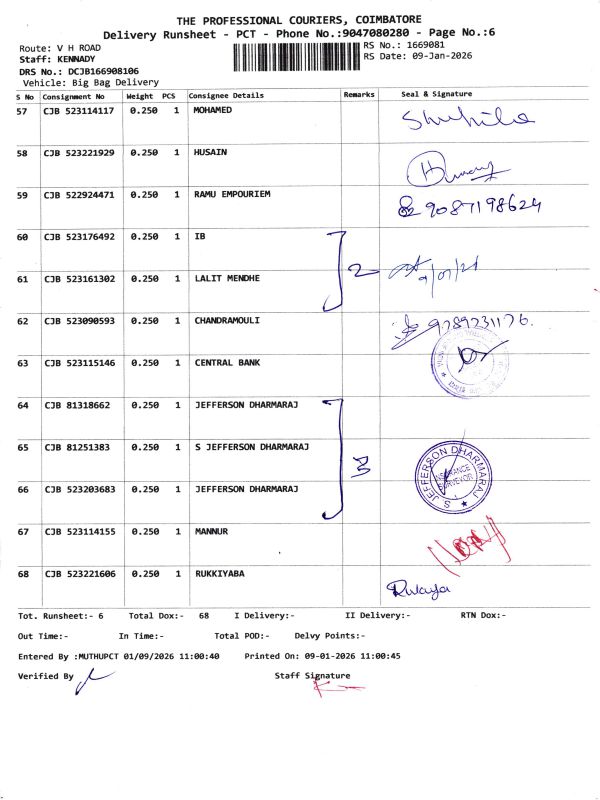 THE PROFESSIONAL COURIERS, COIMBATORE
Delivery Runsheet - PCT - Phone No.:9047080280 - Page No.:6
Route: V H ROAD
RS No.: 1669081
Staff: KENNADY
RS Date: 09-Jan-2026
DRS No.: DCJB166908106
Vehicle: Big Bag Delivery
S No Consignment No Weight PCS Consignee Details Remarks Seal & Signature
57 CJB 523114117 0.250 1 MOHAMED
58 CJB 523221929 0.250 1 HUSAIN
59 CJB 522924471 0.250 1 RAMU EMPOURIEM 9087198624
60 CJB 523176492 0.250 1 IB
2
61 CJB 523161302 0.250 1 LALIT MENDHE
62 CJB 523090593 0.250 1 CHANDRAMOULI 9789231176.
63 CJB 523115146 0.250 1 CENTRAL BANK
64 CJB 81318662 0.250 1 JEFFERSON DHARMARAJ
65 CJB 81251383 0.250 1 S JEFFERSON DHARMARAJ 3
S. JEFFERSON DHARMARAJ
INSURANCE
SURVEYOR
66 CJB 523203683 0.250 1 JEFFERSON DHARMARAJ
67 CJB 523114155 0.250 1 MANNUR
68 CJB 523221606 0.250 1 RUKKIYABA
Tot. Runsheet:- 6 Total Dox:- 68 I Delivery:- II Delivery:- RTN Dox:-
Out Time:- In Time:- Total POD:- Delvy Points:-
Entered By :MUTHUPCT 01/09/2026 11:00:40 Printed On: 09-01-2026 11:00:45
Verified By
Staff Signature